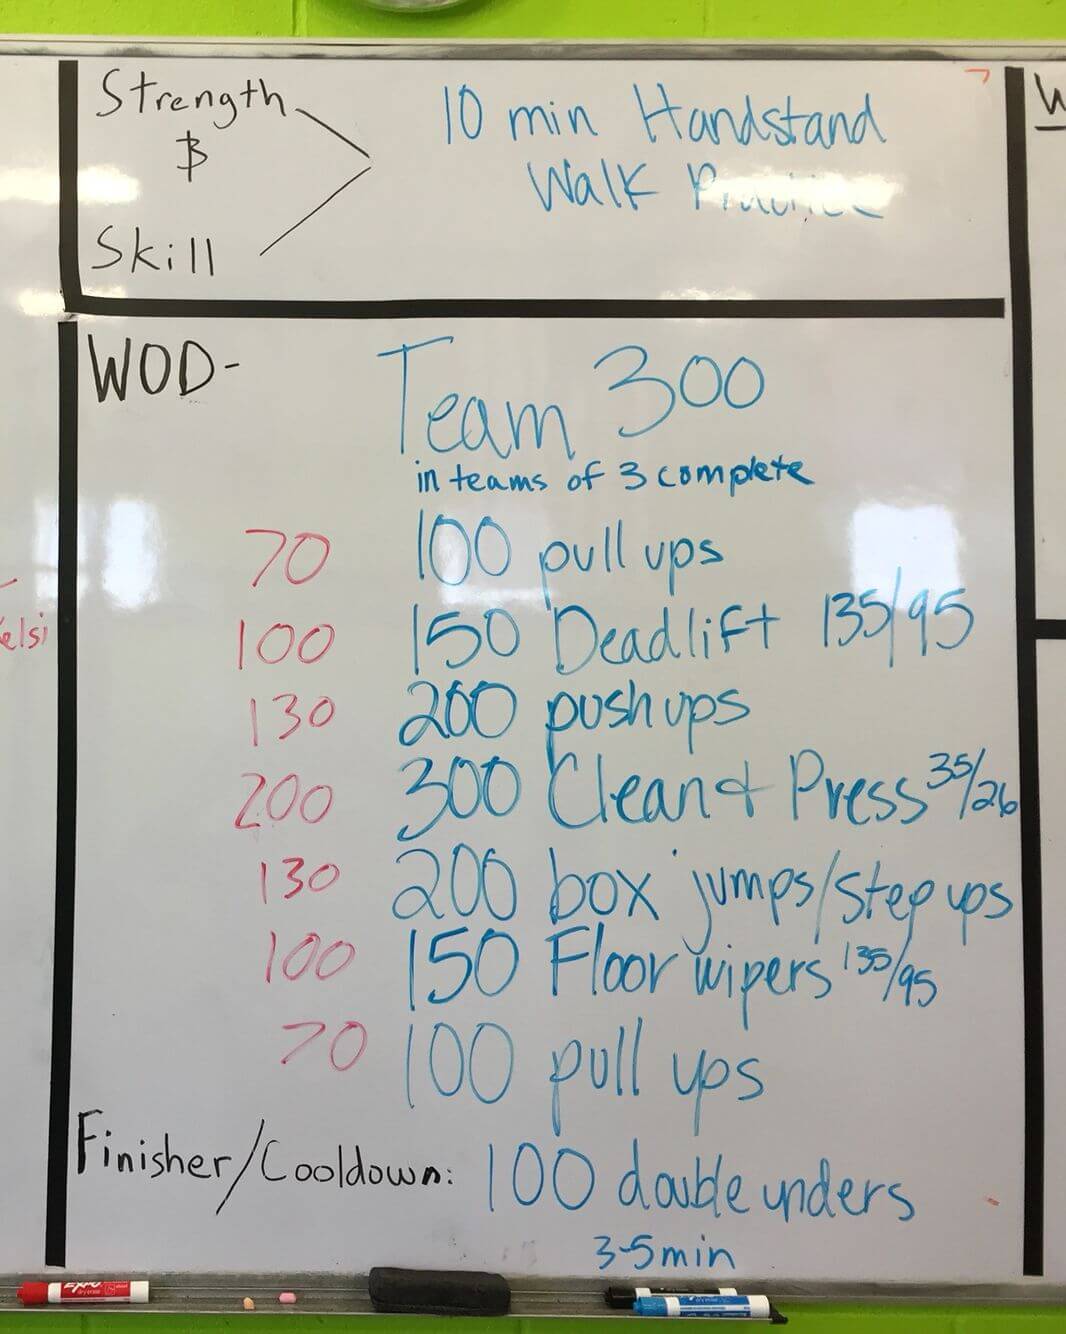 Strength
&
Skill
10 min Handstand
Walk Practice
WOD-
Team 300
in teams of 3 complete
70 100 pull ups
100 150 Deadlift 135/95
130 200 push ups
200 300 Clean & Press 35/26
130 200 box jumps/step ups
100 150 Floor wipers 135/95
70 100 pull ups
Finisher/Cooldown: 100 double unders
3-5 min
EXPO